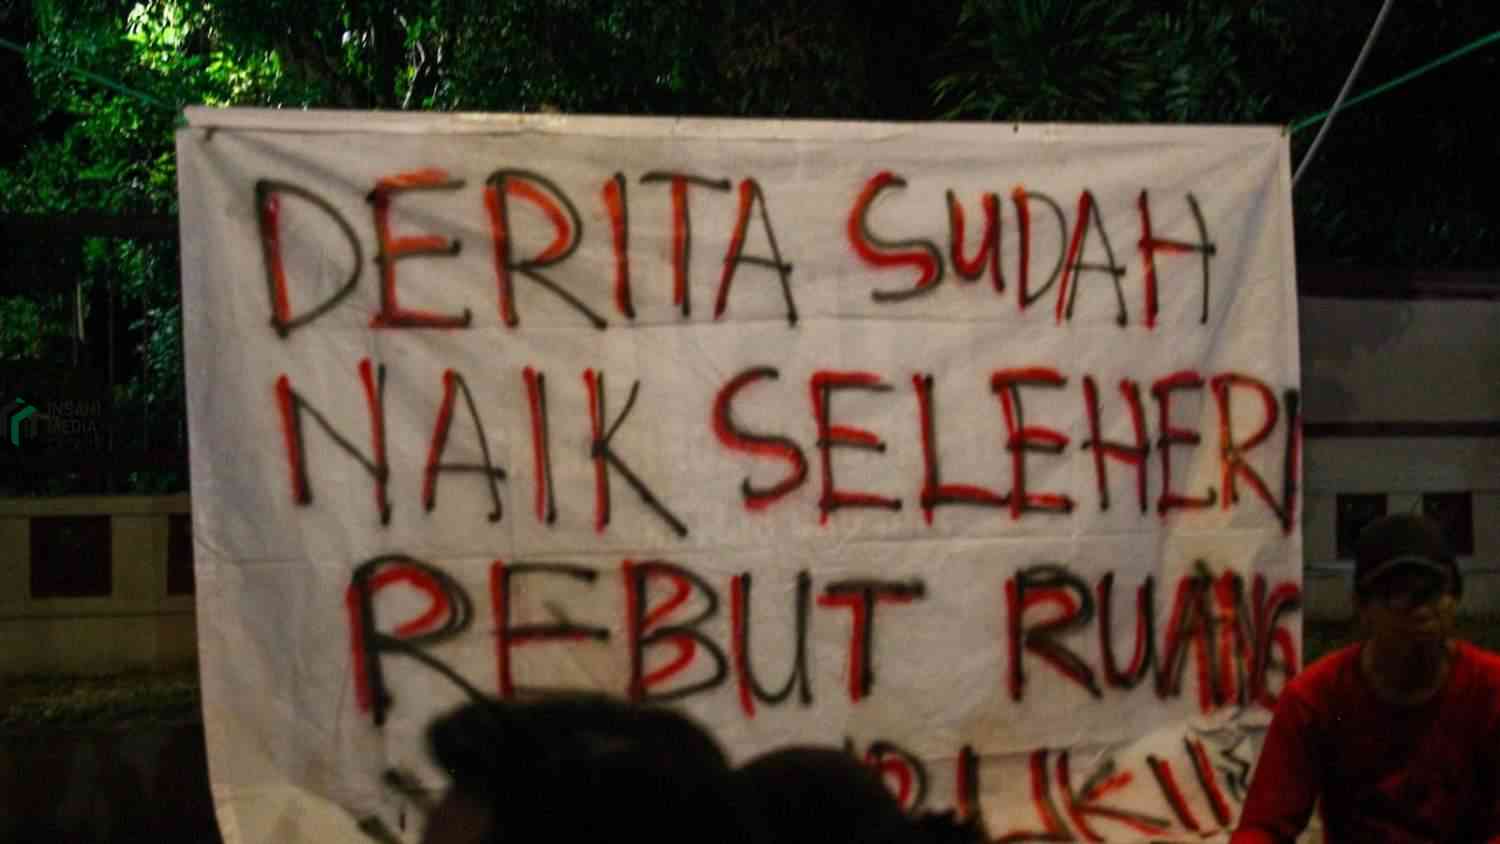 DERITA SUDAH
NAIK SELEHER!
REBUT RUANG
INSANI
MEDIA